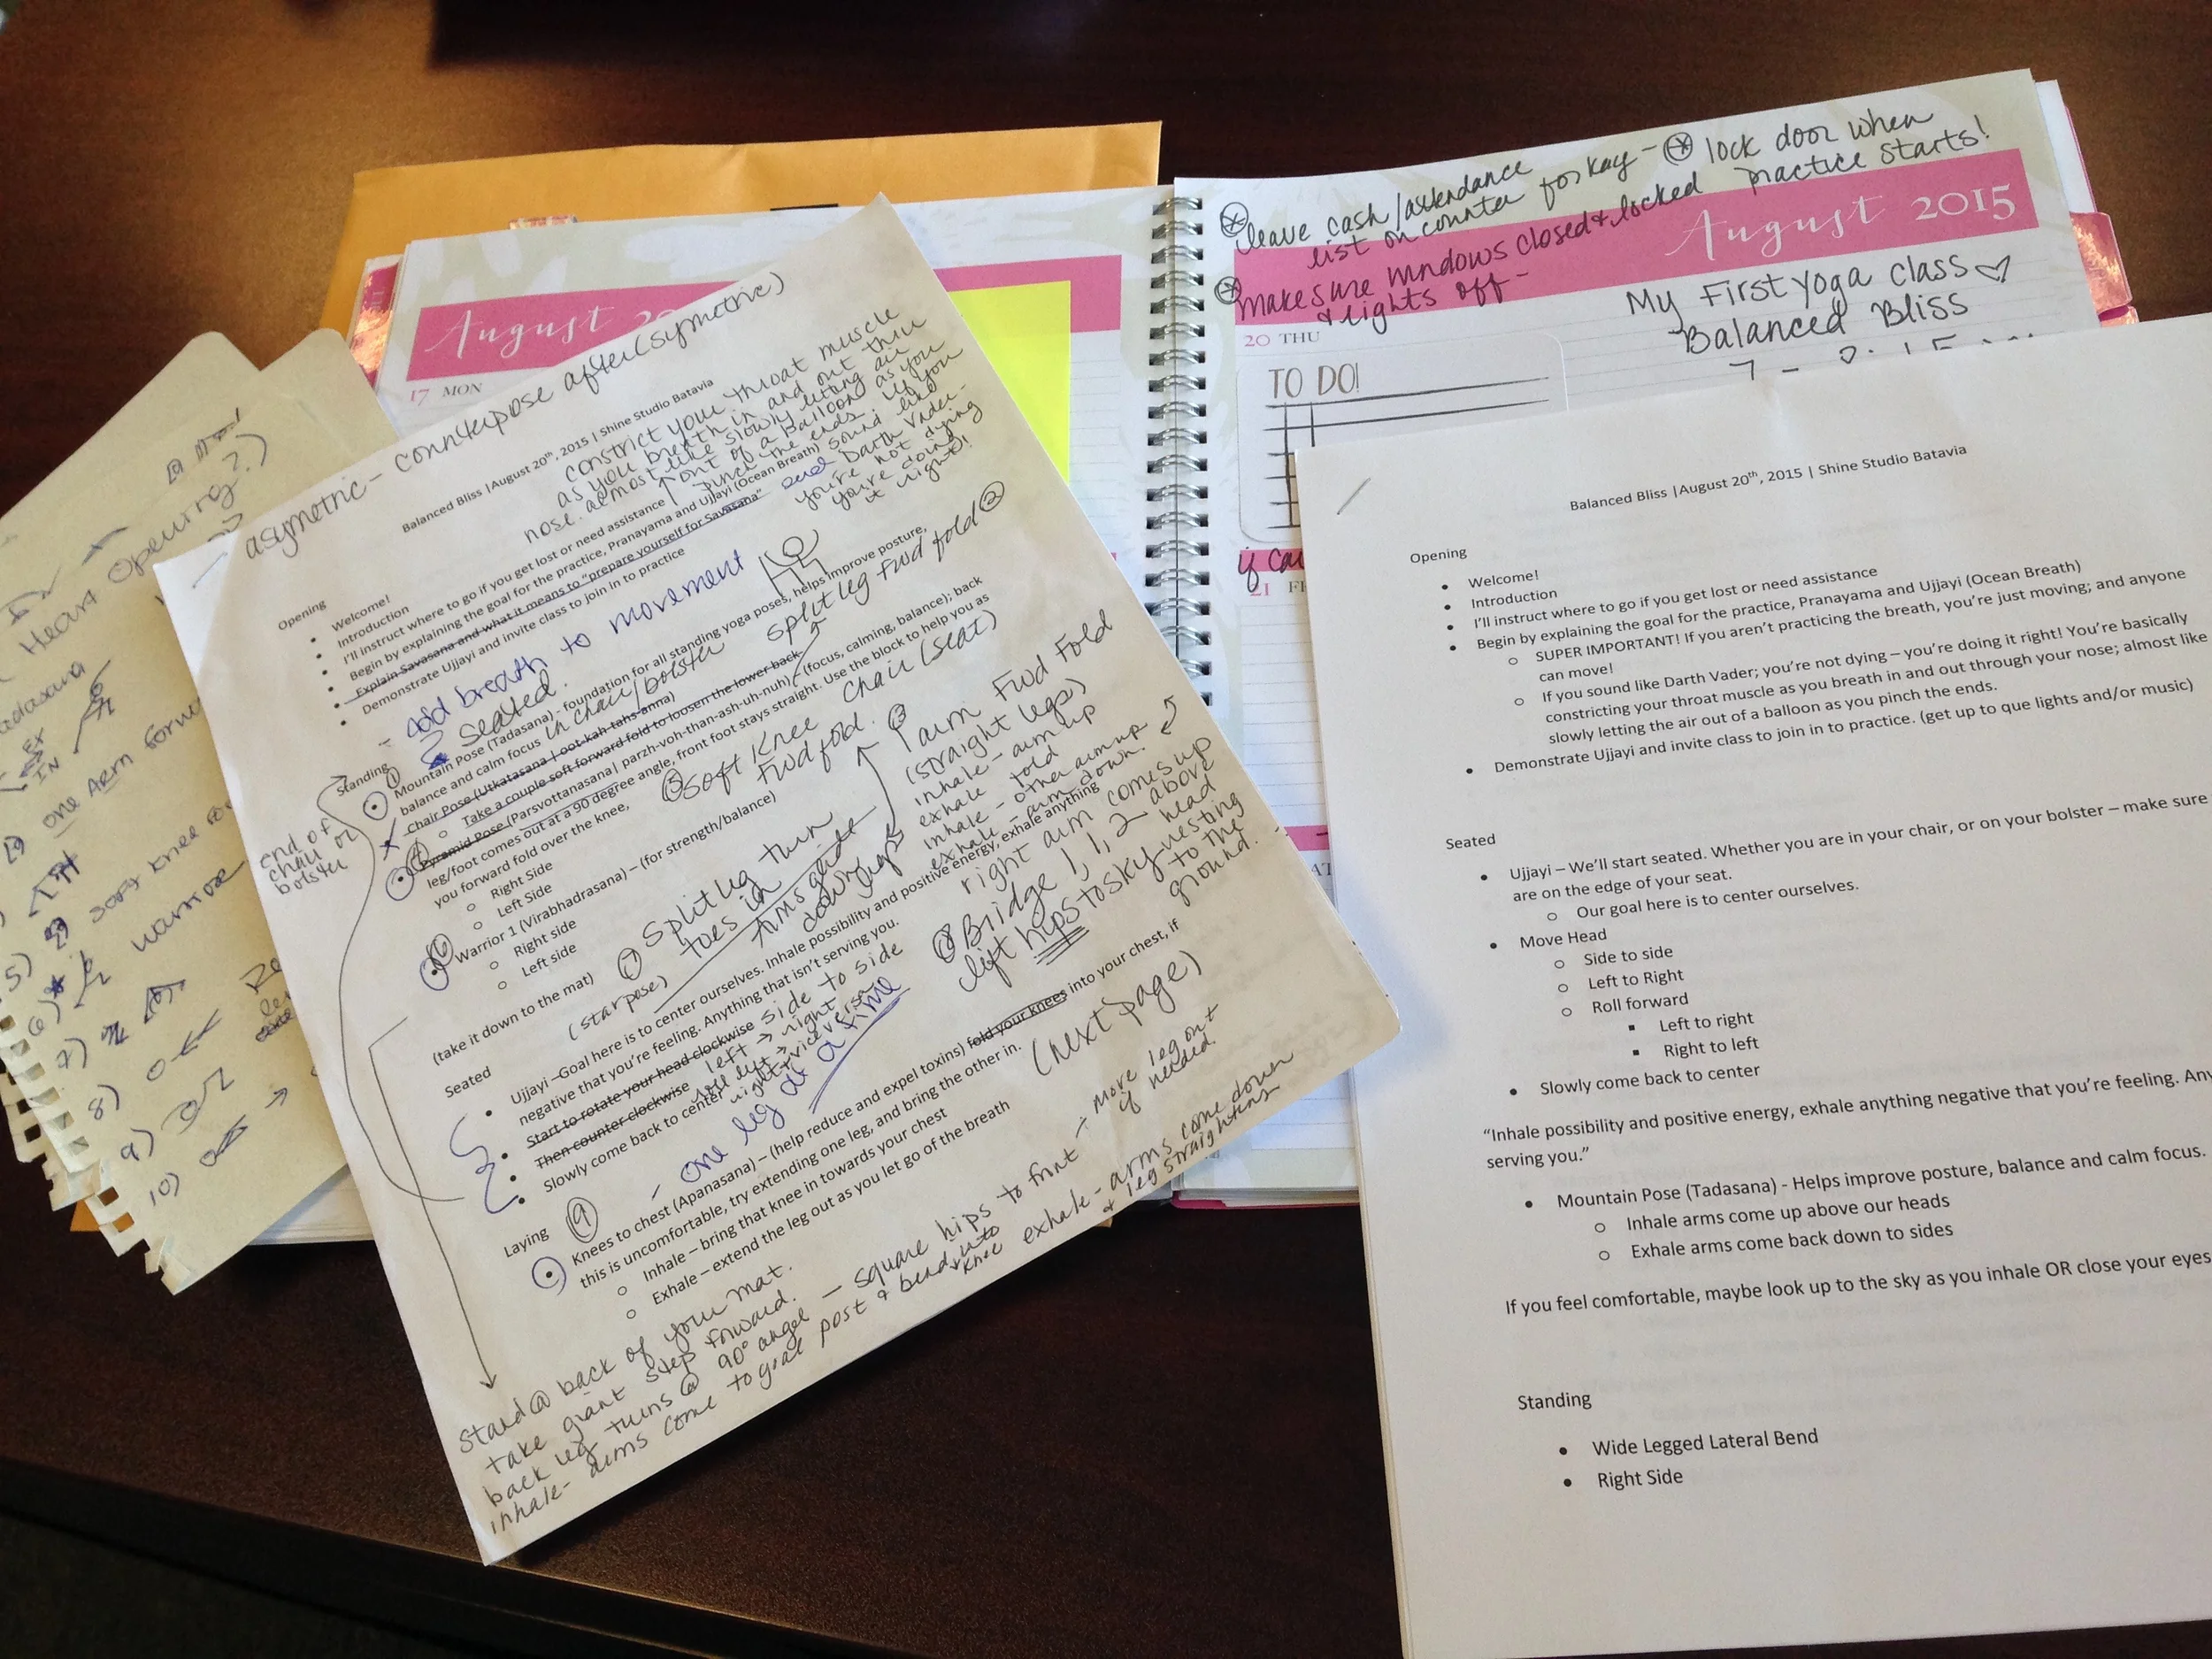 Heart Opening?)
one Arm
IN
5)
6)
7)
8)
9)
10)
August
17 MON
asymetric - counterpose after (symetric)
Balanced Bliss | August 20th, 2015 | Shine Studio Batavia
constrict your throat muscle
as you breath in and out thru
nose. almost like slowly letting air
out of a balloon as you
pinch the ends. if you
sound like
Darth Vader -
you're not dying
you're doing
it right!
Opening
• Welcome!
• Introduction
• I'll instruct where to go if you get lost or need assistance
• Begin by explaining the goal for the practice, Pranayama and Ujjayi (Ocean Breath)
• Explain Savasana and what it means to "prepare yourself for Savasana"
• Demonstrate Ujjayi and invite class to join in to practice
- add breath to movement
Seated.
Standing
① Mountain Pose (Tadasana) - foundation for all standing yoga poses, helps improve posture,
balance and calm focus
in chair/bolster
split leg fwd fold ②
Chair Pose (Utkatasana | oot-kah-tahs-anna)
o Take a couple soft forward fold to loosen the lower back
chair (seat)
Pyramid Pose (Parsvottanasana | parzh-voh-than-ash-uh-nuh) – (focus, calming, balance); back
leg/foot comes out at a 90 degree angle, front foot stays straight. Use the block to help you as
you forward fold over the knee,
o Right Side
o Left Side
soft knee
fwd fold.
end of
chair or
bolster
Warrior 1 (Virabhadrasana) – (for strength/balance)
o Right side
o Left side
1 arm Fwd Fold
(straight legs)
inhale - arm up
exhale fold
inhale - other arm up
exhale - arm down.
(take it down to the mat)
⑦ Split leg turn
toes in
(star pose)
Arms glide
down legs
right arm comes up
1, 1, 2 above
head
Bridge
lift hips to sky - resting
to the
ground.
Seated
• Ujjayi –Goal here is to center ourselves. Inhale possibility and positive energy, exhale anything
negative that you're feeling. Anything that isn't serving you.
• Start to rotate your head clockwise
side to side
• Then counter clockwise
left → right
• Slowly come back to center
- one leg at a time
Laying
⑨
Knees to chest (Apanasana) – (help reduce and expel toxins) fold your knees into your chest, if
this is uncomfortable, try extending one leg, and bring the other in.
o Inhale – bring that knee in towards your chest
o Exhale – extend the leg out as you let go of the breath
(next page)
Stand @ back of your mat.
take giant step forward.
back leg turns @ 90° angel - square hips to front - move leg out
if needed.
inhale - arms come to goal post & bend into
knee
exhale - arms come down
& leg straightens
leave cash/attendance
list on counter for Kay -
lock door when
practice starts!
make sure windows closed & locked
& lights off -
August 2015
My First yoga class ♡
Balanced Bliss
20 THU
TO DO!
21
Balanced Bliss |August 20th, 2015 | Shine Studio Batavia
Opening
• Welcome!
• Introduction
• I'll instruct where to go if you get lost or need assistance
• Begin by explaining the goal for the practice, Pranayama and Ujjayi (Ocean Breath)
o SUPER IMPORTANT! If you aren't practicing the breath, you're just moving; and anyone
can move!
o If you sound like Darth Vader; you're not dying – you're doing it right! You're basically
constricting your throat muscle as you breath in and out through your nose; almost like
slowly letting the air out of a balloon as you pinch the ends.
• Demonstrate Ujjayi and invite class to join in to practice. (get up to que lights and/or music)
Seated
• Ujjayi – We'll start seated. Whether you are in your chair, or on your bolster – make sure
are on the edge of your seat.
o Our goal here is to center ourselves.
• Move Head
o Side to side
o Left to Right
o Roll forward
▪ Left to right
▪ Right to left
• Slowly come back to center
"Inhale possibility and positive energy, exhale anything negative that you're feeling.
serving you."
• Mountain Pose (Tadasana) - Helps improve posture, balance and calm focus.
o Inhale arms come up above our heads
o Exhale arms come back down to sides
If you feel comfortable, maybe look up to the sky as you inhale OR close your eyes
Standing
• Wide Legged Lateral Bend
• Right Side